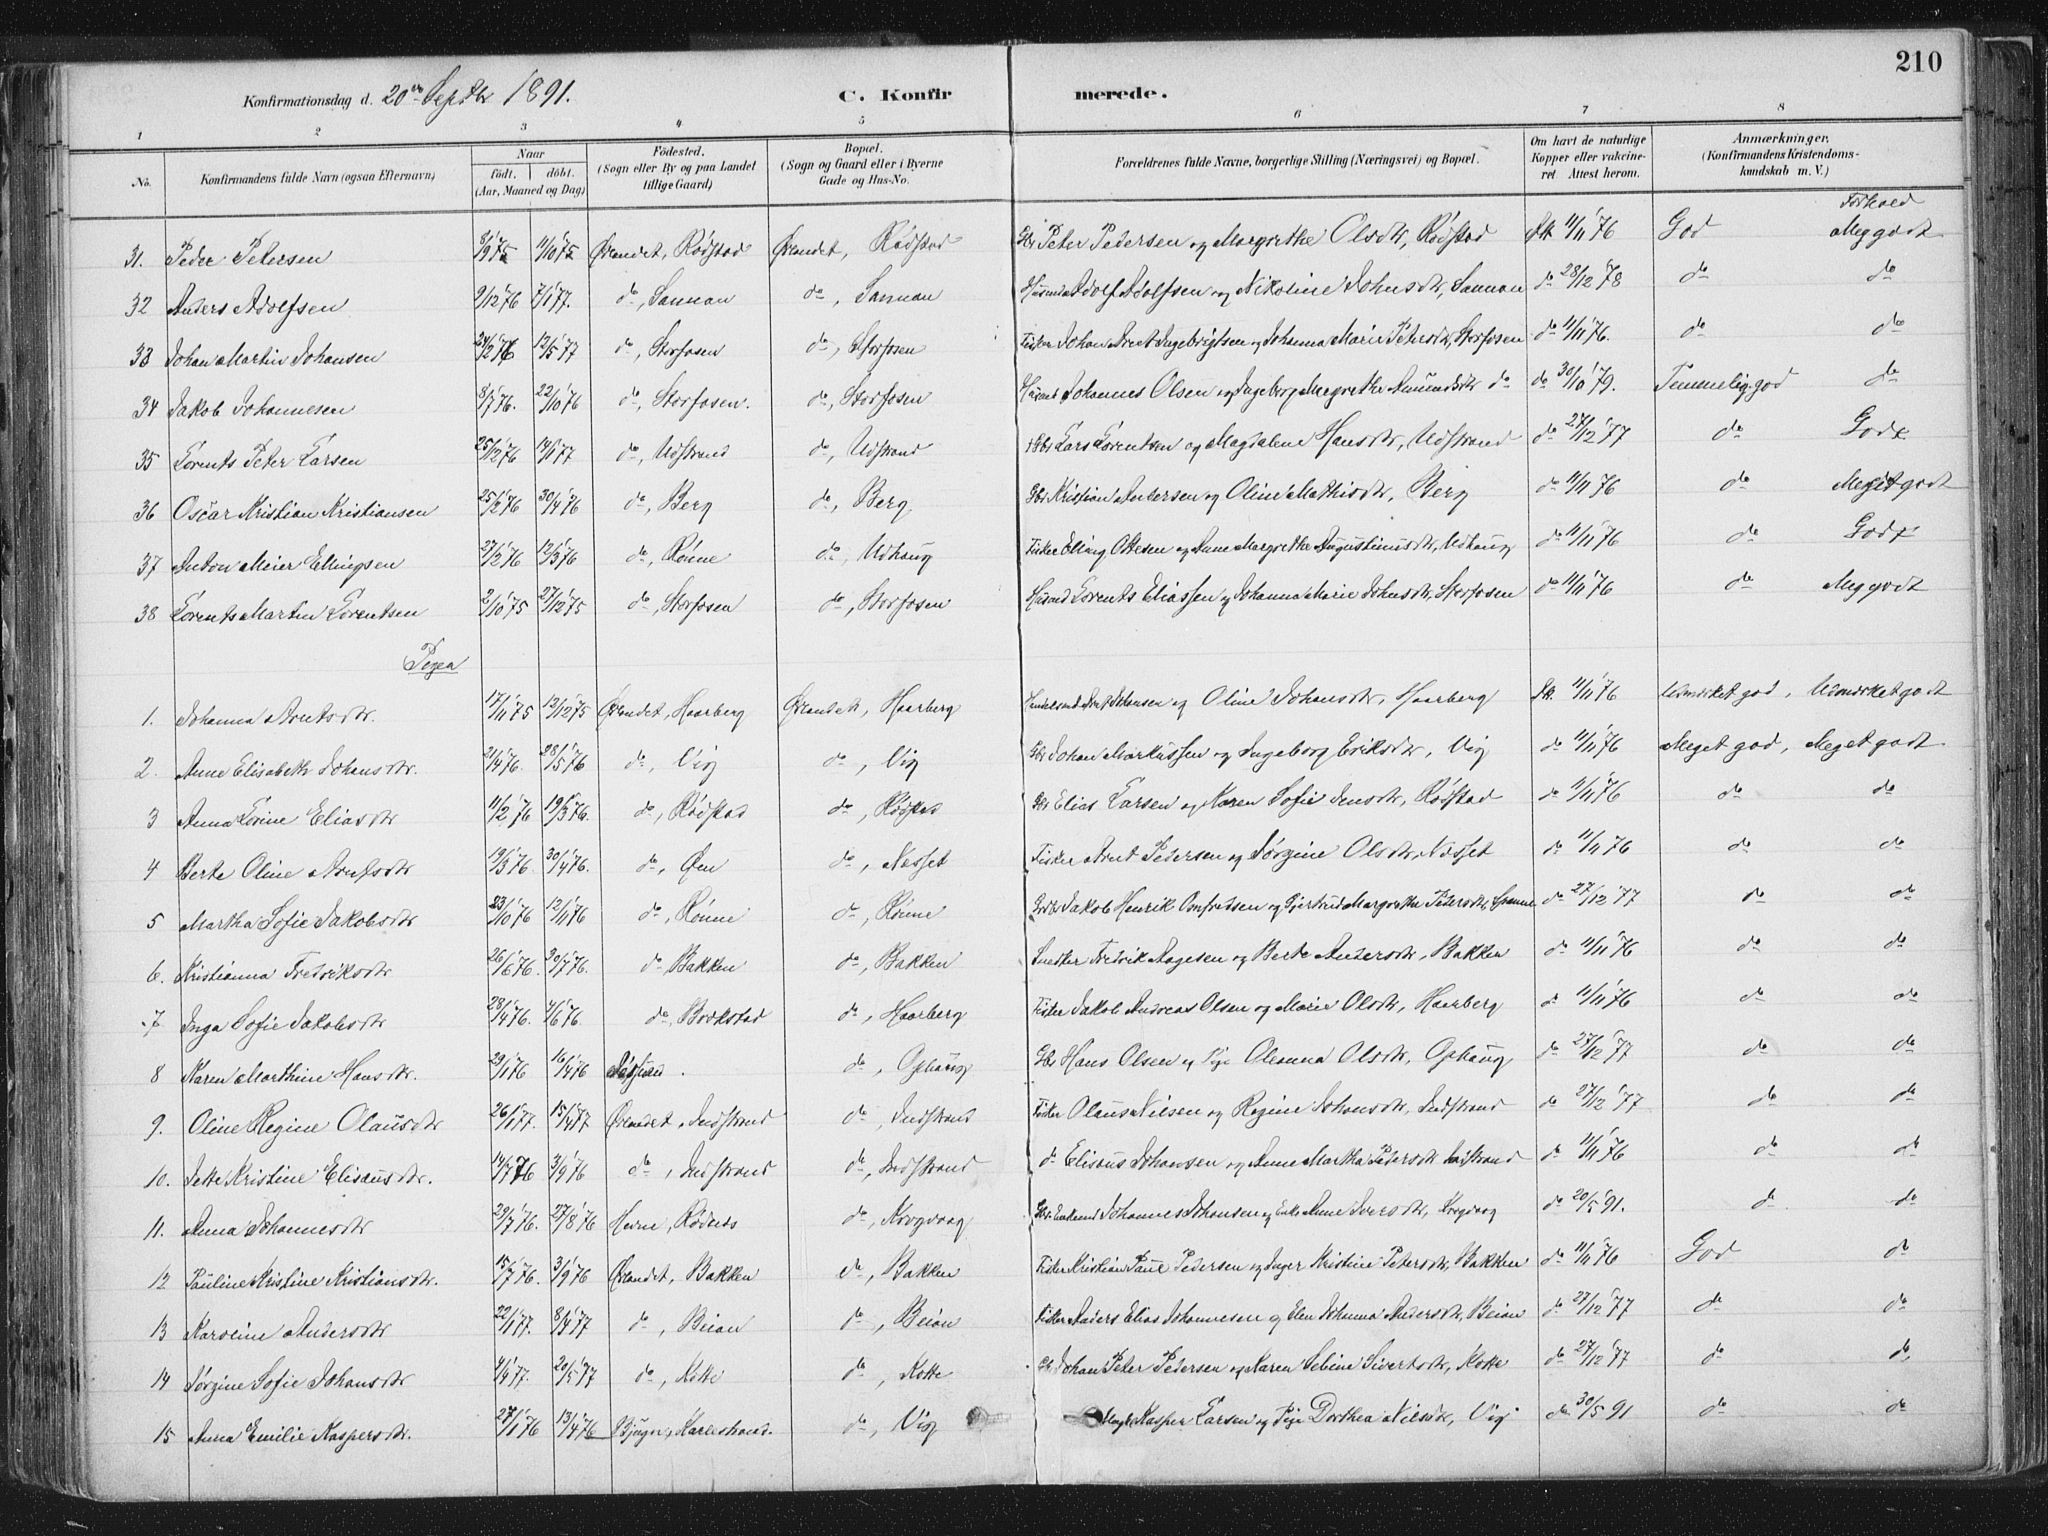 210
Konfirmationsdag d. 20de Septbr 1891. C. Konfir merede.
1 2 3 4 5 6 7 8
No. Konfirmandens fulde Navn (ogsaa Efternavn) Naar født. døbt. (Aar, Maaned og Dag) Födested. (Sogn eller By og paa Landet tillige Gaard) Bopæl. (Sogn og Gaard eller i Byerne Gade og Hus-No. Forældrenes fulde Navne, borgerlige Stilling (Næringsvei) og Bopæl. Om havt de naturlige Kopper eller vakcineret Attest herom. Anmærkninger. (Konfirmandens Kristendomskundskab m. V.)
Forhold
31. Peder Petersen 3/9 75 11/10 75 Ørlandet, Rødstad Ørlandet, Rødstad Gbr Peter Pedersen og Margrethe Olsdtr, Rødstad 11/11 76 God Meg godt
32 Anders Adolfsen 9/12 76 7/1 77. do, Sannan do, Sannan Husmd Adolf Adolfsen og Nikoline Johnsdtr, Sannan do 28/12 78 do do
33 Johan Martin Johansen 24/2 76 12/5 77 do, Storfosen do, Storfosen Fisker Johan Arnt Ingebrigtsen og Johanna Marie Petersdtr, Storfosen do 11/11 76. do do
34 Jakob Johannesen 8/7 76. 22/10 76 do, Storfosen. do, Storfosen Husmd Johannes Olsen og Ingeborg Margrethe Amundsdtr do do 30/10 79. Temmelig god do
35 Lorents Peter Larsen 25/12 76 14/1 77 do, Udstrand do, Udstrand Gbr Lars Lorentsen og Magdalene Hansdtr, Udstrand do 27/12 77 do Godt
36 Oscar Kristian Kristiansen 25/2 76 30/4 76 do, Berg do, Berg Gbr Kristian Andersen og Oline Mathisdtr, Berg do 11/11 76 do Meget godt
37 Anton Meier Ellingsen 27/2 76 12/3 76 do, Rønne do, Udhaug Fisker Elling Ottesen og Anne Margrethe Augustinusdtr, Udhaug do 11/11 76 do Godt
38 Lorents Martin Lorentsen 2/10 75 27/12 75 do, Storfosen do, Storfosen Husmd Lorents Eliassen og Johanna Marie Johnsdtr, Storfosen do 11/11 76 do Meg godt
Piger
1. Johanna Arntsdtr. 17/11 75 12/12 75 Ørlandet, Haarberg Ørlandet, Haarberg Arnt Johansen og Oline Johansdtr, Haarberg 11/11 76 Udmærket god, Udmærket godt
2. Anne Elisabeth Johansdtr. 21/4 76. 28/5 76 do, Vig do, Vig Gbr Johan Markussen og Ingeborg Eriksdtr, Vig do 11/11 76 Meget god, Meget godt
3 Anna Lorine Eliasdtr 11/2 76 19/3 76. do, Rødstad do, Rødstad Gbr Elias Larsen og Karen Sofie Jensdtr, Rødstad do 11/11 76 do do
4 Berte Oline Arntsdtr 19/3 76. 30/4 76. do, Øen do, Næsset Fisker Arnt Pedersen og Jørgine Olsdtr, Næsset do 11/11 76 do do
5 Martha Sofie Jakobsdtr 23/10 76 12/11 76 do, Rønne do, Rønne Jakob Henrik og Gjertrud Margrethe Pedersdtr, do 27/12 77 do do
6. Kristianna Fredriksdtr 26/6 76. 30/7 76. do, Bakken do, Bakken Snedker Fredrik Aagesen og Berte Andersdtr, Bakken do 11/11 76 do do
7 Inga Sofie Jakobsdtr 28/4 76. 4/6 76 do, Borkstad do, Haarberg Fisker Jakob Andreas Olsen og Marie Olsdtr, Haarberg do 11/11 76 do do
8 Karen Marthine Hansdtr. 29/1 76 16/4 76 do, Ophaug Gbr Hans Olsen og Pige Oleanna Olsdtr, Ophaug do 27/12 77 do do
9. Oline Regine Olausdtr 26/1 77. 15/4 77 Ørlandet, Indstrand do, Indstrand Fisker Olaus Nilsen og Regine Johansdtr, Indstrand do 27/12 77 do do
10. Jette Kristine Elisæusdtr. 14/7 76 3/9 76 do, Indstrand do, Indstrand do Elisæus Johansen og Anne Martha Pedersdtr Indstrand do 11/11 76 do do
11. Anna Johannesdtr 29/7 76. 27/8 76 Hevne, Rødnes do, Krogvaag Gbr Johannes Johansen og Anne Iversdtr, Krogvaag do 20/5 91. do do
12 Pauline Kristine Kristiansdtr. 15/7 76. 3/9 76 Ørlandet, Bakken do, Bakken Fisker Kristian Paul Pedersen og Inger Kristine Petersdtr, Bakken do 11/11 76 God do
13 Karoline Andersdtr 22/1 77. 8/4 77 do, Beian do, Beian Fisker Anders Elias Johannesen og Elen Johanna Andersdtr, Beian do 27/12 77 do do
14 Jørgine Sofie Johansdtr 4/4 77. 20/5 77 do, Kotte do, Kotte Gbr Johan Peter Pedersen og Karen Sebine Sivertsdtr, Kotte do 27/12 77 do do
15 Anna Emilie Kaspersdtr. 27/1 76 13/4 76 Bjugn, Karlestrand. do, Vig Ungk. Kasper Larsen og Pige Dorthea Nilsdtr, Vig do 30/5 91 do do